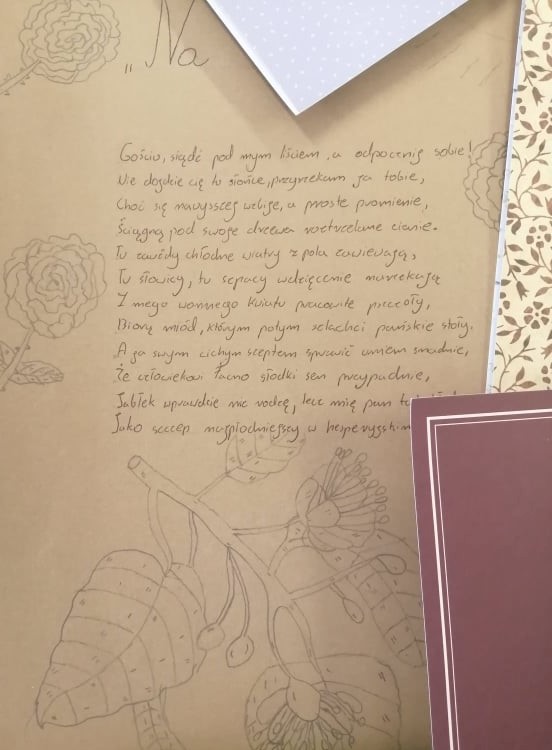 „Na
Gościu, siądź pod mym liściem, a odpocznij sobie!
Nie dojdzie cię tu słońce, przyrzekam ja tobie,
Choć się nawyższej wzbije, a proste promienie,
Ściągną pod swoje drzewa rozstrzelane cienie.
Tu zawżdy chłodne wiatry z pola zawiewają,
Tu słowicy, tu szpacy wdzięcznie narzekają
Z mego wonnego kwiatu pracowite pszczoły,
Biorą miód, którym potym szlachci pańskie stoły.
A ja swym cichym szeptem sprawić umiem snadnie,
Że człowiekowi łacno słodki sen przypadnie,
Jabłek wprawdzie nie rodzę, lecz mię pan
Jako szczep najpłodniejszy w